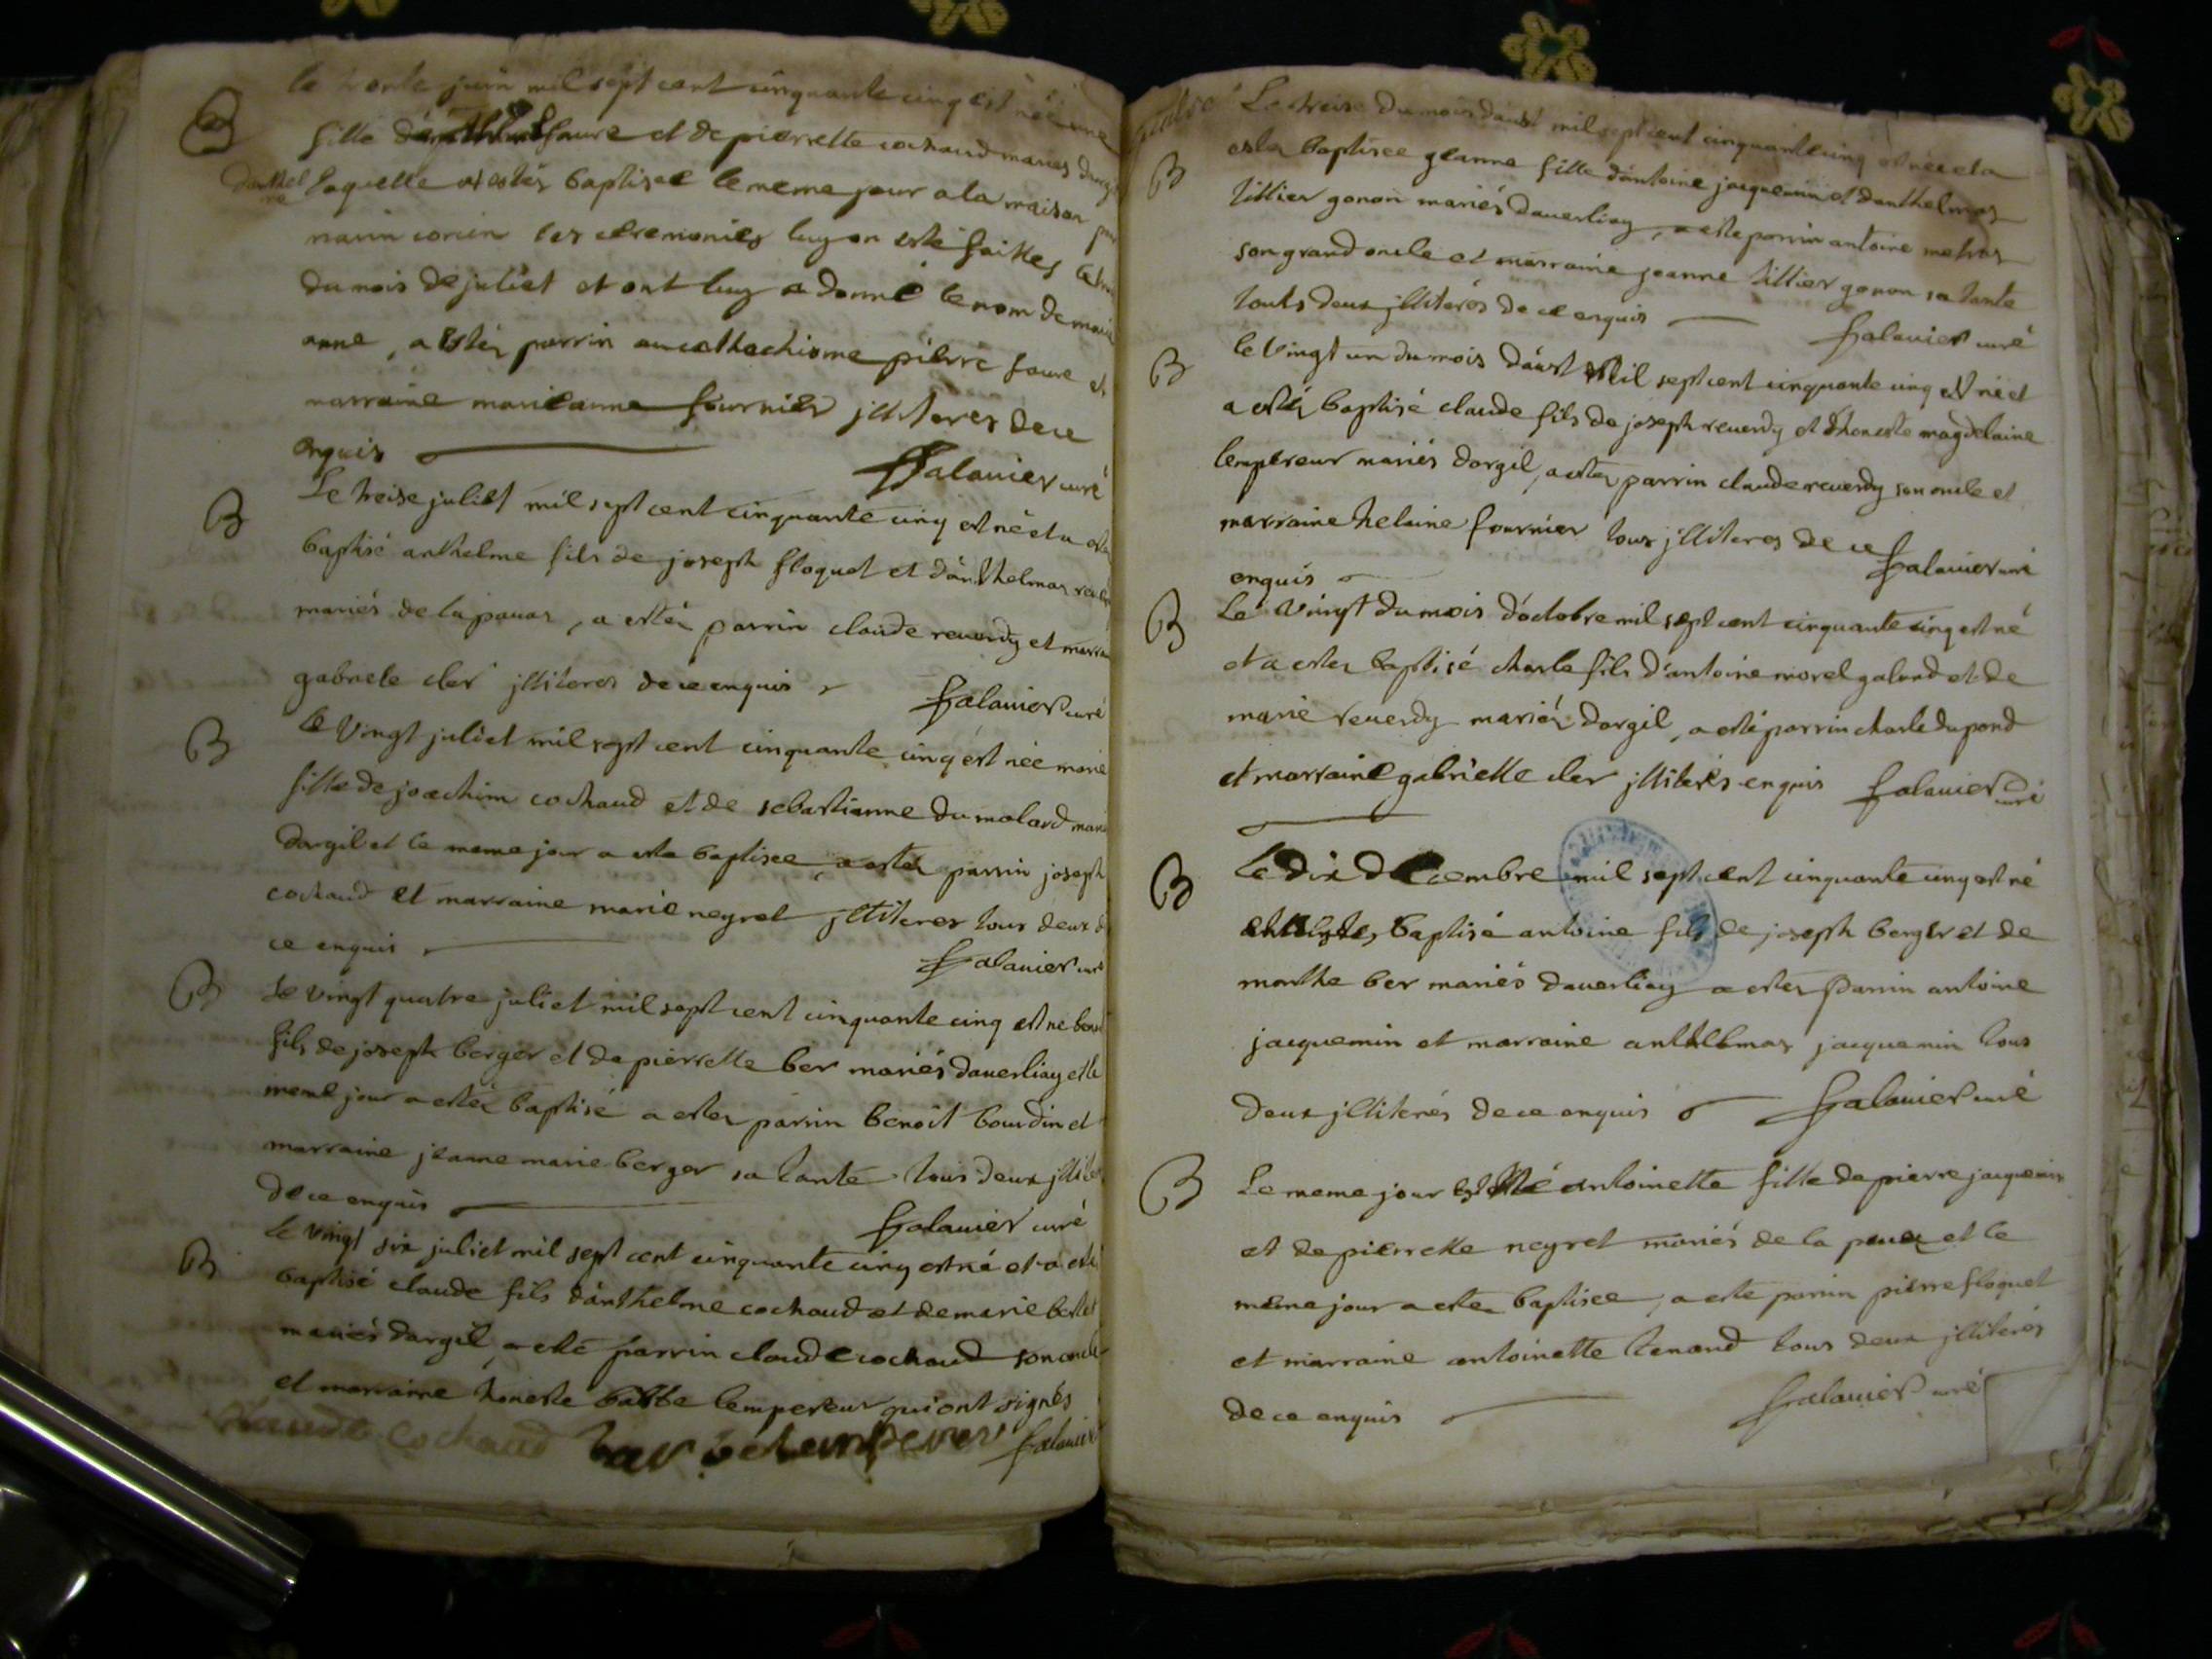 le trente juin mil sept cent cinquante cinq est née une
B
fille faure et de pierrette cochaud mariés
laquelle at estéz baptisée le meme jour a la maison
les ceremonies luy on esté faittes
du mois de juliet et ont luy a donné le nom de
anne, a estéz parrin au cathechisme pierre faure et
marraine marieanne fournier jlliteres de ce
enquis
falavier curé
B
Le treise juliet mil sept cent cinquante cinq est né et a
baptisé anthelme fils de joseph floquet et d'anthelmas
mariés de la pavas, a estéz parrin claude reverdy et
gabriele cler jlliteres de ce enquis
falavier curé
B
le vingt juliet mil sept cent cinquante cinq est née marie
fille de joachim cochaud et de sebastianne du molard
dargil et le meme jour a esté baptisée, a estéz parrin joseph
cochaud et marraine marie neyret jlliteres tous deux
ce enquis
falavier curé
B
Le vingt quatre juliet mil sept cent cinquante cinq est né
fils de joseph berger et de pierrette ber mariés daverliay et le
meme jour a estéz baptisé a estéz parrin benoit bourdin et
marraine jeanne marie berger sa tante tous deux
de ce enquis
falavier curé
B
le vingt six juliet mil sept cent cinquante cinq est né et a esté
baptisé claude fils d'anthelme cochaud et de marie
mariés dargil, a esté parrin claude cochaud son oncle
et marraine honeste lempereur qui ont signés
claude cochaud
falavier
Le treise du mois d'aust mil sept cent cinquante cinq est née et a
B
estéz baptisée jeanne fille d'antoine jacquemin et danthelmas
tillier gonon mariés daverliay, a esté parrin antoine metras
son grand oncle et marraine jeanne tillier gonon sa tante
touts deux jlliterés de ce enquis
falavier curé
B
le vingt un du mois d'aust mil sept cent cinquante cinq est né et
a estéz baptisé claude fils de joseph reverdy et d'honeste magdelaine
lempereur mariés dargil, a estéz parrin claude reverdy son oncle et
marraine helaine fournier tous jlliteres de ce
enquis
falavier curé
B
Le vingt du mois d'octobre mil sept cent cinquante cinq est né
et a estéz baptisé charle fils d'antoine morel galand et de
marie reverdy mariés dargil, a esté parrin charle dupond
et marraine gabrielle cler jlliterés enquis
falavier curé
B
Le dix decembre mil sept cent cinquante cinq est né
baptisé antoine fils de joseph berger et de
marthe ber mariés daverliay a estéz parrin antoine
jacquemin et marraine anthelmas jacquemin tous
deux jlliterés de ce enquis
falavier curé
B
Le meme jour est né antoinette fille de pierre jacquemin
et de pierrette neyret mariés de la pavas et le
meme jour a estéz baptisée, a esté parrin pierre floquet
et marraine antoinette tenand tous deux jlliterés
de ce enquis
falavier curé